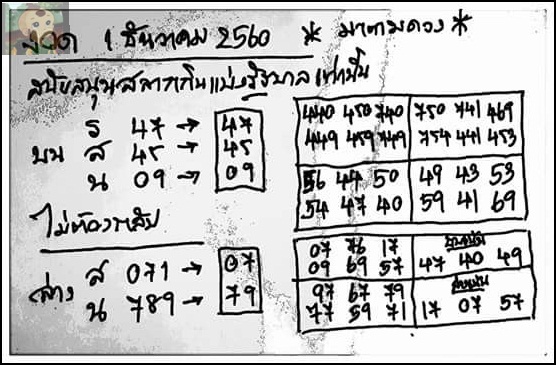 งวด 1 ธันวาคม 2560 * มาตามดวง *
สนับสนุนสลากกินแบ่งรัฐบาลเท่านั้น
บน
ร 47 → 47
ส 45 → 45
น 09 → 09
ไม่ต้องกลับ
ล่าง
ส 071 → 07
น 789 → 79
440 450 740 750 741 469
449 459 749 754 441 453
56 44 50 49 43 53
54 47 40 59 41 69
07 76 17
09 69 57 47 40 49
97 67 79
77 59 71 17 07 57